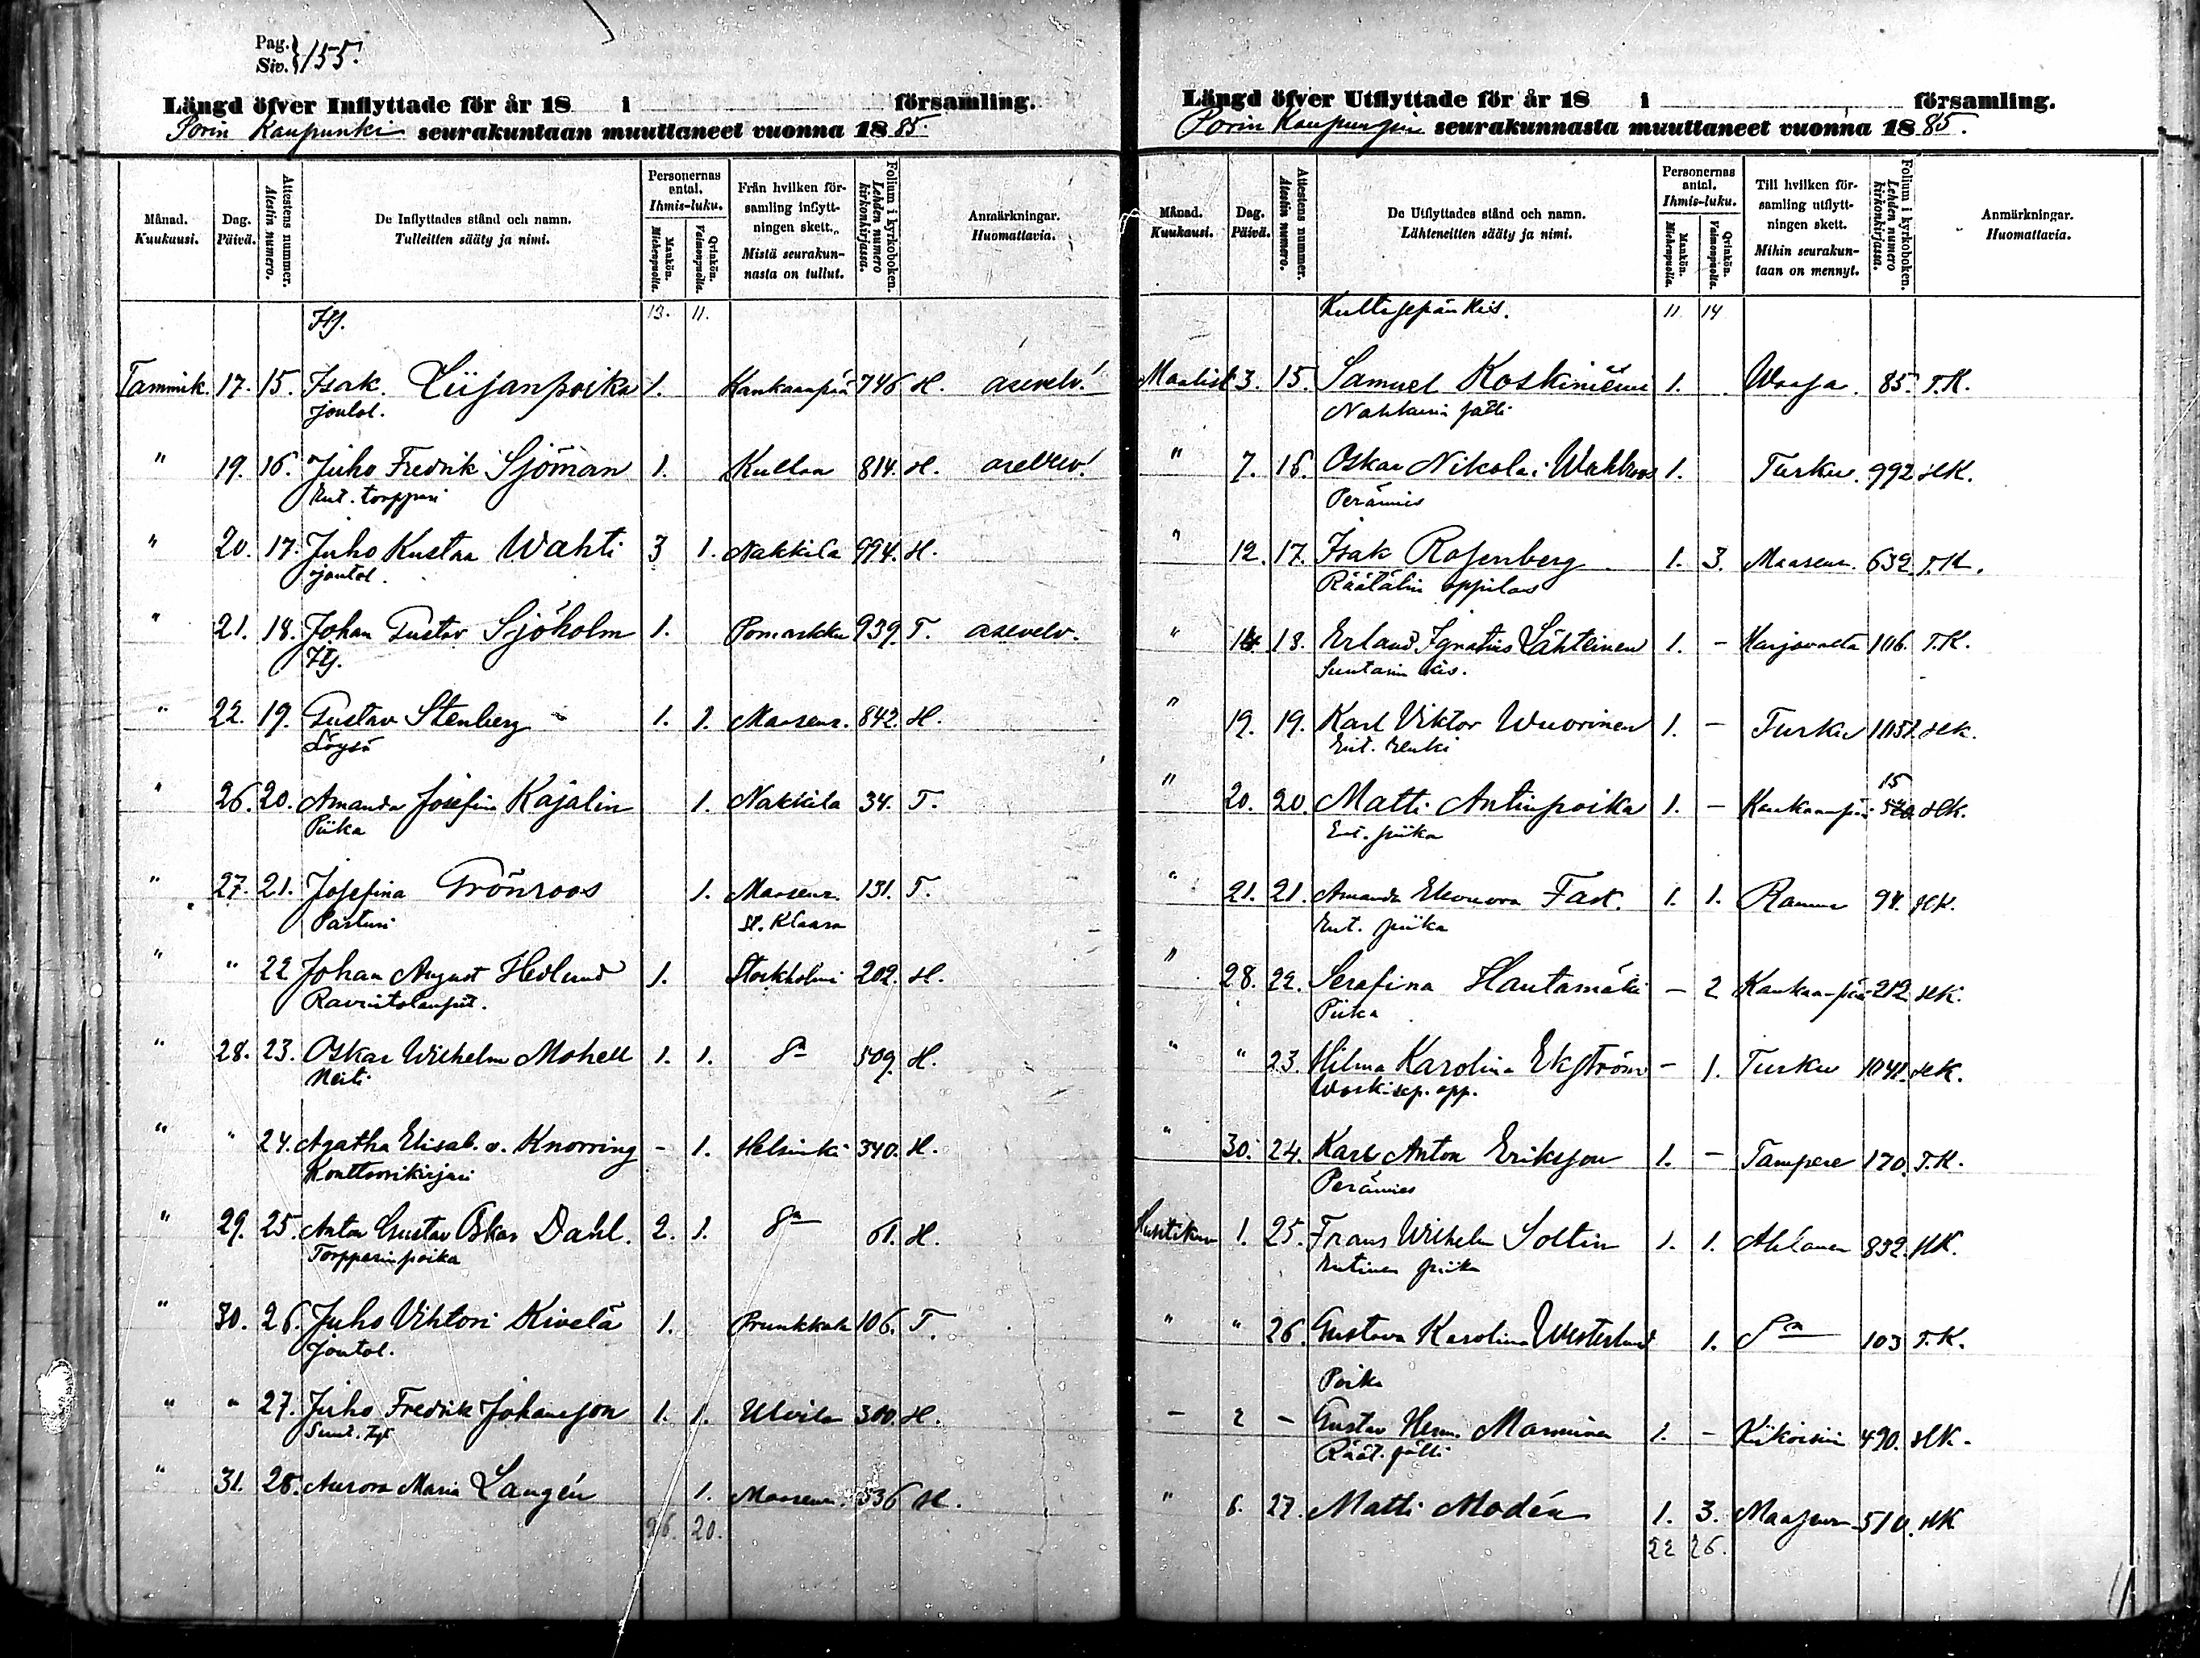 Pag. Siv. } 155.
Längd öfver Inflyttade för år 18 i församling.
Porin Kaupunki seurakuntaan muuttaneet vuonna 1885.
Månad. Kuukausi.
Dag. Päivä.
Attestens nummer. Atestin numero.
De Inflyttades stånd och namn. Tulleitten sääty ja nimi.
Personernas antal. Ihmis-luku.
Mankön. Miehenpuolia.
Qvinkön. Vaimonpuolia.
Från hvilken församling inflyttningen skett. Mistä seurakunnasta on tullut.
Folium i kyrkoboken. Lehden numero kirkonkirjassa.
Anmärkningar. Huomattavia.
Itj. 13. 11.
Tammik. 17. 15. Isak Liisanpoika 1. Kankaanpää 746 H. asevelv.!
joutol.
" 19. 16. Juho Fredrik Sjöman 1. Kullaa 814. H. asevelv!
Ent. torppari
" 20. 17. Juho Kustaa Wahti 3 1. Nakkila 994. H.
joutol.
" 21. 18. Johan Gustav Sjöholm 1. Pomarkku 939. T. asevelv.
Itj.
" 22. 19. Gustav Stenberg 1. 1. Maaseur. 842. H.
Löysä
" 26. 20. Amanda Josefina Kajalin 1. Nakkila 34. T.
Piika
" 27. 21. Josefina Grönroos 1. Maaseur. 131. T.
Parturi St. Klaara
" " 22 Johan August Hedlund 1. Stockholmi 202. H.
" 28. 23. Oskar Wilhelm Mohell 1. 1. 509. H.
Neiti
" " 24. Agatha Elisab. v. Knorring - 1. Helsinki 340. H.
Konttoorikirjuri
" 29. 25. Anton Gustav Oskar Dahl. 2. 1. 61. H.
Torpparinpoika
" 30. 26. Juho Vihtori Kivelä 1. Prunkkala 106. T.
joutol.
" " 27. Juho Fredrik Johansson 1. 1. Ulvila 300. H.
" 31. 28. Aurora Maria Langén 1. Maaseur. 536 H.
26. 20.
Längd öfver Utflyttade för år 18 i församling.
Porin Kaupungin seurakunnasta muuttaneet vuonna 1885.
Månad. Kuukausi.
Dag. Päivä.
Attestens nummer. Atestin numero.
De Utflyttades stånd och namn. Lähteneitten sääty ja nimi.
Personernas antal. Ihmis-luku.
Mankön. Miehenpuolia.
Qvinkön. Vaimonpuolia.
Till hvilken församling utflyttningen skett. Mihin seurakuntaan on mennyt.
Folium i kyrkoboken. Lehden numero kirkonkirjassa.
Anmärkningar. Huomattavia.
Kultasepän kis. 11 14
Maalisk 3. 15. Samuel Koskiniemi 1. Waasa 85. T.K.
Nahkurin sälli
" 7. 16. Oskar Nikolai Wahlroos 1. Turku 992 HK.
Perämies
" 12. 17. Isak Rosenberg 1. 3. Maaseur. 632. T.K.
Räätälin oppilas
" 14. 18. Erland Ignatius Lähteinen 1. - Harjavalta 106. T.K.
Suutarin kis.
" 19. 19. Karl Viktor Wuorinen 1. - Turku 1051. HK.
Ent. renki
15
" 20. 20. Matti Antinpoika 1. - Kankaanpää 520 HK.
Ent. piika
" 21. 21. Amanda Eleonora Fast. 1. 1. Rauma 94. HK.
Ent. piika
" 28. 22. Serafina Hautamäki - 2 Kankaanpää 212 HK.
Piika
" " 23. Hilma Karolina Ekström - 1. Turku 1041. HK.
Waskisep. opp.
" 30. 24. Karl Anton Eriksson 1. - Tampere 170. T.K.
Perämies
Huhtikuu 1. 25. Frans Wilhelm Soltin 1. 1. Ahlainen 832. HK.
Entinen piika
" " 26. Gustava Karolina Westerlund 1. 103 T.K.
Poika
- 2 - Gustav Herm. Manninen 1. - Kikoisiin 490. HK.
Räät. sälli
" 6. 27. Matti Modén 1. 3. Maaseur. 510. HK
22 26.